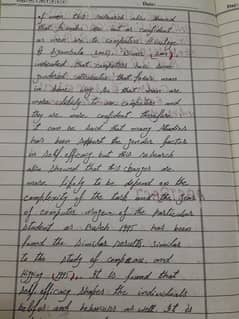 Date
of women this research also showed
that females are not as confident
as men are to computers
&
indicated that computers have some
gendered
in some way so that men are
more likely to use computers and
they are more confident therefore
it can be said that many studies
has been support the gender factor
in self efficacy but this research
also showed that this changes are
more likely to be depend on the
complexity of the task and the
of computer of the particular
student as Busch 1995 has been
found the similar results similar
to the study of and
Higgins 1995. It is found that
self efficacy shapes the individuals
belief and behaviors as well. It is